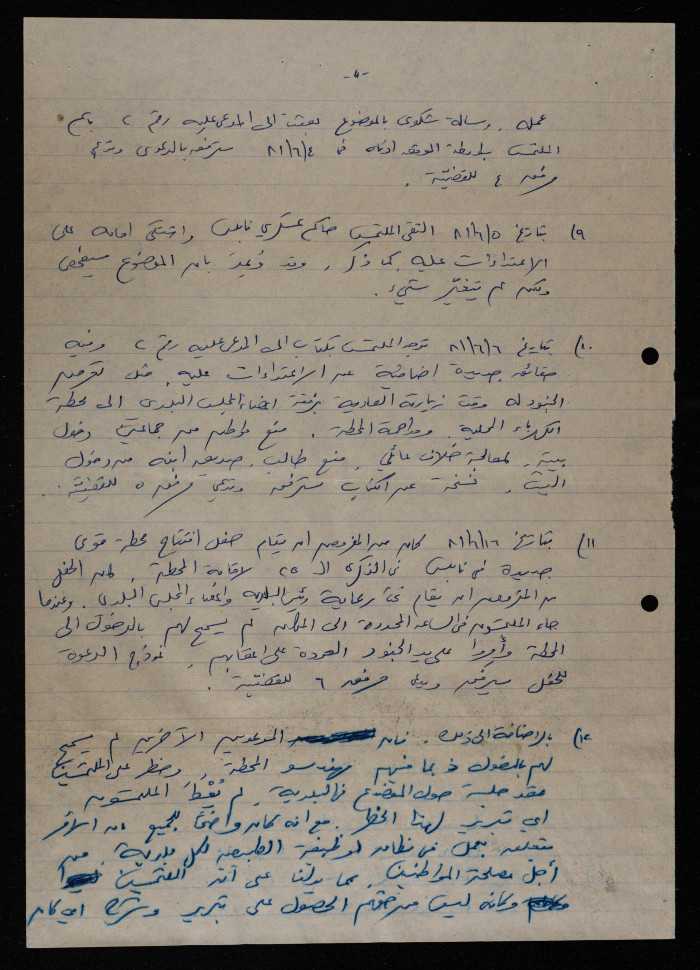 -٤-
عمله. رسالة شكوى بالموضوع بعثت الى المدعى عليه رقم ٢ باسم
الملتمس بواسطة الموقعه ادناه في ٨١/٦/٤ سترفق بالدعوى وتدعى
مرفق ٤ للقضية.
٩) بتاريخ ٨١/٦/٥ التقى الملتمس حاكم عسكري نابلس واشتكى امامه على
الاعتداءات عليه كما ذكر. وقد وُعِدَ بان الموضوع سيفحص
ولكن لم يتغيّر شيء.
١٠) بتاريخ ٨١/٦/٦ توجه الملتمس بكتاب الى المدعى عليه رقم ٢ وفيه
حقائق جديدة اضافية عن الاعتداءات عليه. مثل تعرض
الجنود له وقت زيارته العادية برفقة اعضاء المجلس البلدي الى محطة
الكهرباء المحلية. ومداهمة المحطة. منع مواطنين من جماعين دخول
بيته لمعالجة خلاف عائلي. منع طالب، صديق ابنه من دخول
البيت. نسخة عن الكتاب سترفق وتدعى مرفق ٥ للقضية.
١١) بتاريخ ٨١/٦/١٦ كان من المفروض ان يقام حفل افتتاح محطة قوى
جديدة في نابلس في الذكرى الـ ٢٥ لاقامة المحطة. كان الحفل
من المفروض ان يقام تحت رعاية رئيس البلدية واعضاء المجلس البلدي. وعندما
جاء الملتمسون في الساعة المحددة الى المكان لم يسمح لهم بالدخول الى
المحطة وأُمروا على يد الجنود العودة على اعقابهم. نموذج الدعوة
للحفل سيرفق ويدعى مرفق ٦ للقضية.
١٢) بالاضافة الى ذلك. فان المدعوين الآخرين لم يسمح
لهم بالدخول بما فيهم مهندسو المحطة. وحظر على الملتمسين
عقد جلسة حول الموضوع في البلدية. لم يُعْطَ الملتمسون
اي تبرير لهذا الحظر. مع انه كان واضحًا للجميع ان الأمر
متعلق بعمل في نطاق الوظيفة الطبيعية لكل بلدية. من
أجل مصلحة المواطنين. مما يدلنا على أن الملتمسين
وكانه ليس من حقهم الحصول على تبرير وشرح اي كان